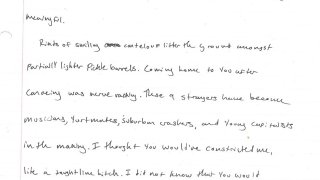 meaningful.
Rinds of smiling canteloup litter the ground amongst
partially lighter Pickle barrels. Coming home to you after
canoeing was nerve racking. These 9 strangers have become
musicians, Yurtmates, suburban crashers, and young capitalists
in the making. I thought you would've constricted me,
like a taughtline hitch. I did not know that you would